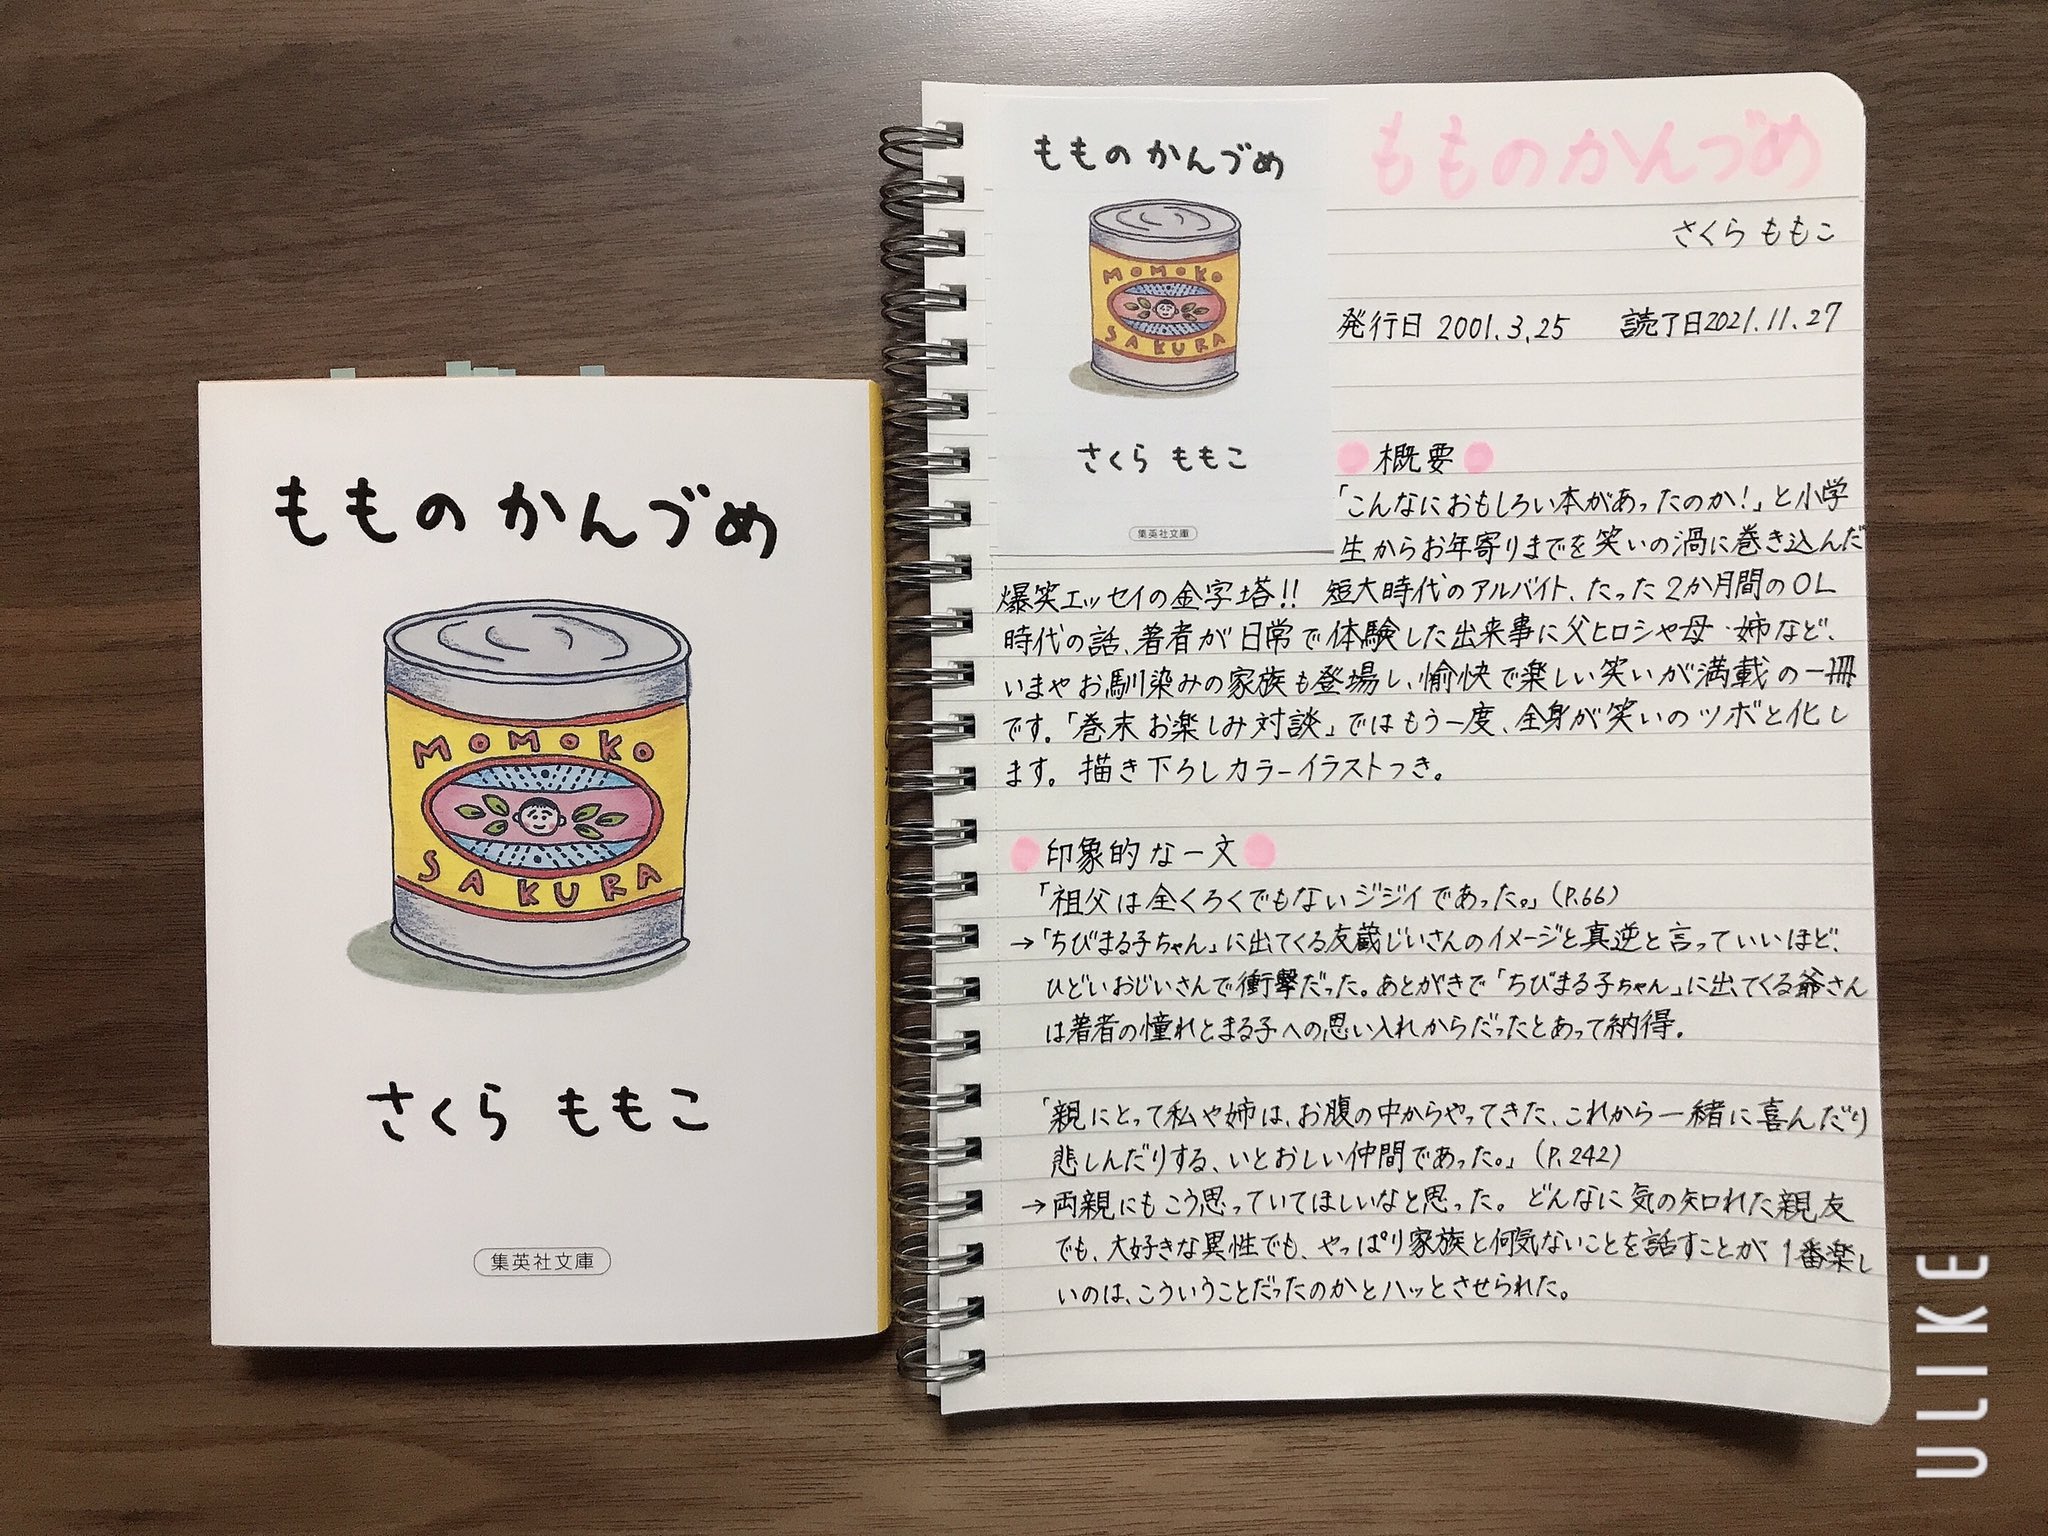 もものかんづめ
MOMOKO
SAKURA
さくら ももこ
集英社文庫
もものかんづめ
MOMOKO
SAKURA
さくら ももこ
集英社文庫
もものかんづめ
さくら ももこ
発行日 2001.3.25 読了日2021.11.27
概要
「こんなにおもしろい本があったのか!」と小学
生からお年寄りまでを笑いの渦に巻き込んだ
爆笑エッセイの金字塔!! 短大時代のアルバイト、たった2か月間のOL
時代の話、著者が日常で体験した出来事に父ヒロシや母・姉など、
いまやお馴染みの家族も登場し、愉快で楽しい笑いが満載の一冊
です。「巻末お楽しみ対談」ではもう一度、全身が笑いのツボと化し
ます。描き下ろしカラーイラストつき。
印象的な一文
「祖父は全くろくでもないジジイであった。」(P.66)
→「ちびまる子ちゃん」に出てくる友蔵じいさんのイメージと真逆と言っていいほど、
ひどいおじいさんで衝撃だった。あとがきで「ちびまる子ちゃん」に出てくる爺さん
は著者の憧れとまる子への思い入れからだったとあって納得。
「親にとって私や姉は、お腹の中からやってきた、これから一緒に喜んだり
悲しんだりする、いとおしい仲間であった。」(P.242)
→両親にもこう思っていてほしいなと思った。どんなに気の知れた親友
でも、大好きな異性でも、やっぱり家族と何気ないことを話すことが1番楽し
いのは、こういうことだったのかとハッとさせられた。
ULIKE